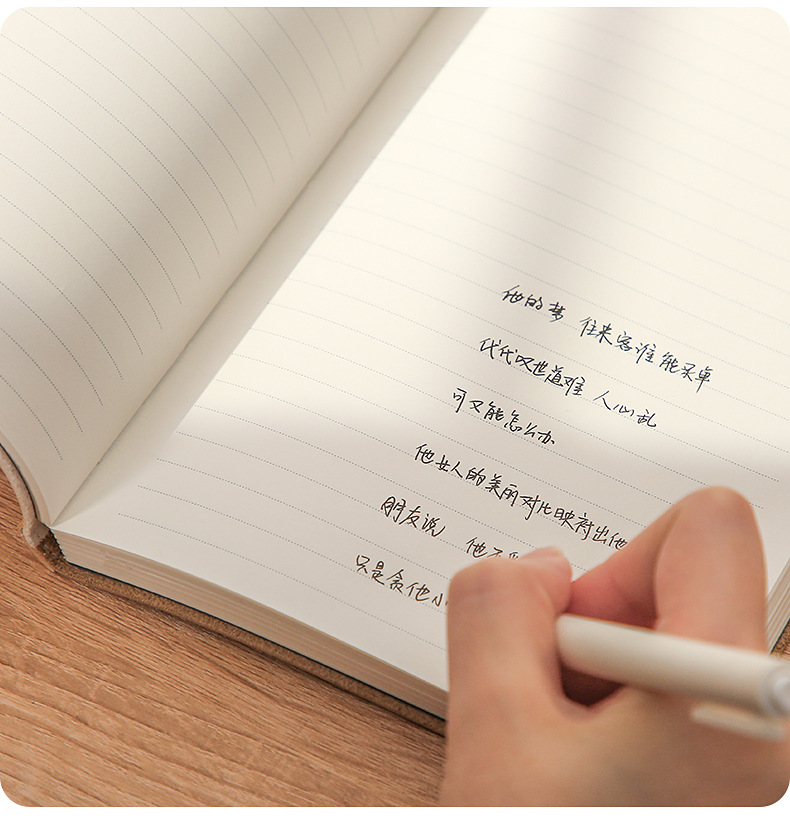 他的梦 往来客谁能买单
代代叹世道难 人心乱
可又能怎么办
他女人的美丽对比映衬出他
朋友说 他不
只是贪他小